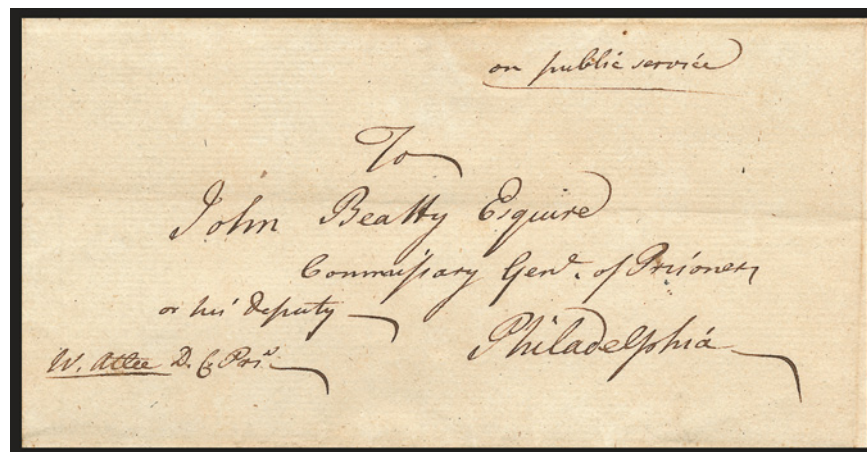 on public service
To
John Beatty Esquire
Commissary Genl. of Prisoners
or his Deputy
Philadelphia
W. Atlee D. C Pris.